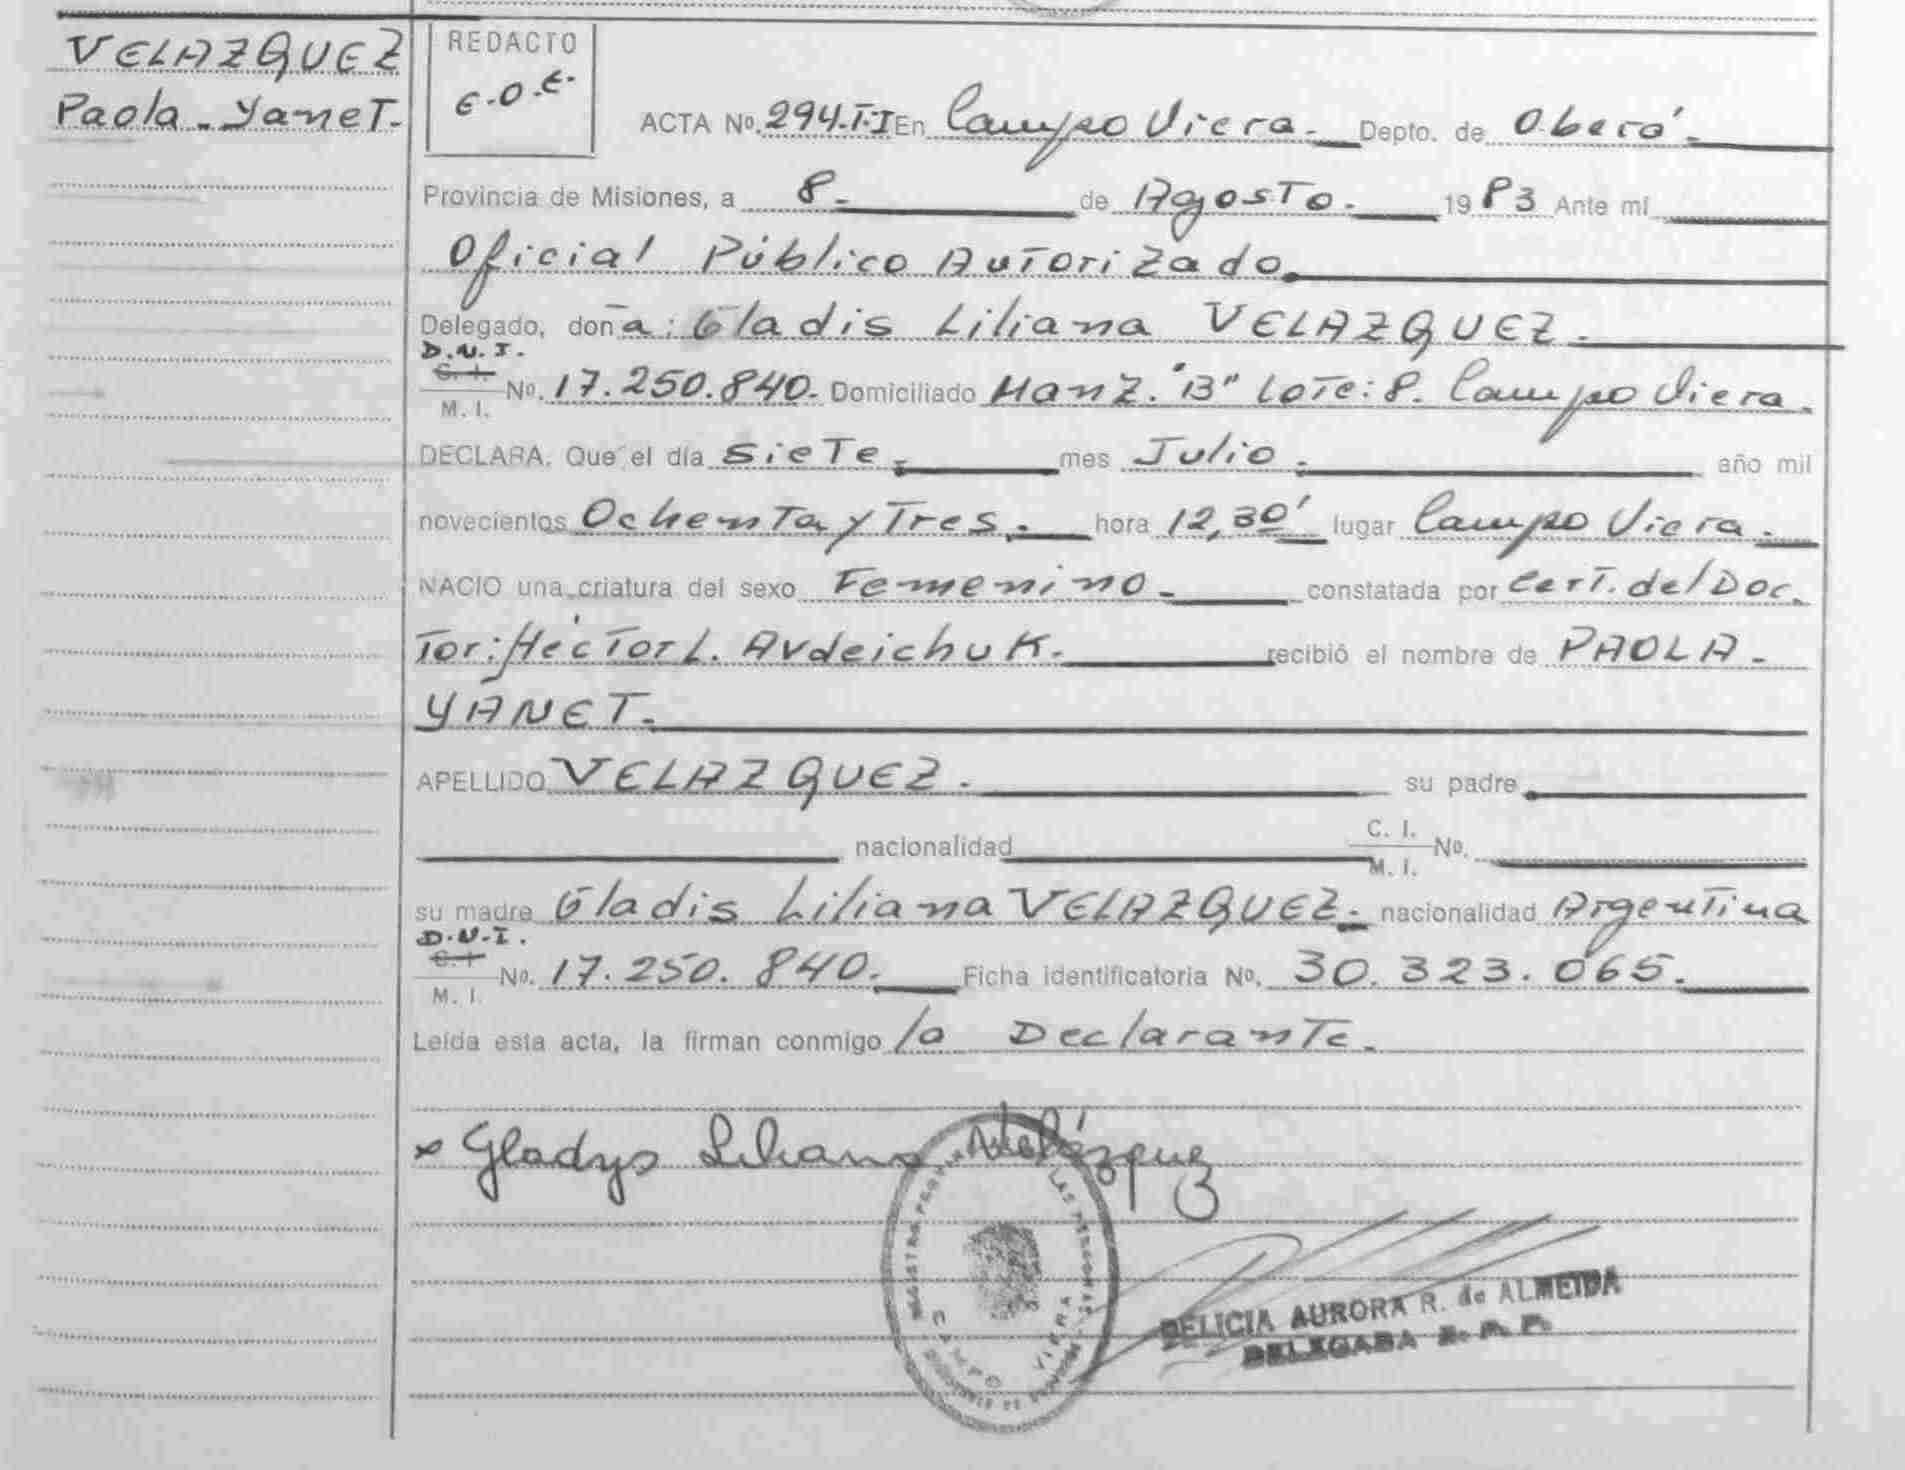 VELAZQUEZ
Paola - Yanet.-
REDACTO
E.O.E.
ACTA Nº. 294.T-I En Campo Viera.- Depto. de Oberá.-
Provincia de Misiones, a 8.- de Agosto.- 1983 Ante mí
Oficial Público Autorizado.
Delegado, don a: Gladis Liliana VELAZQUEZ.-
D.N.I.
C. I.
M. I. Nº. 17.250.840.- Domiciliado Manz. "B" Lote: 8. Campo Viera.-
DECLARA. Que el día Siete.- mes Julio.- año mil
novecientos Ochenta y Tres.- hora 12,30' lugar Campo Viera.-
NACIO una criatura del sexo Femenino.- constatada por Cert. del Doc.
Tor: Héctor L. Avdeichuk.- recibió el nombre de PAOLA-
YANET.-
APELLIDO VELAZQUEZ.- su padre
nacionalidad C. I. M. I. Nº.
su madre Gladis Liliana VELAZQUEZ.- nacionalidad Argentina
D.N.I.
C. I.
M. I. Nº. 17.250.840.- Ficha identificatoria Nº. 30.323.065.-
Leída esta acta, la firman conmigo la Declarante.-
x Gladys Liliana Velázquez
REGISTRO PROVIN LAS PERSONAS
CAMPO VIERA
DELICIA AURORA R. de ALMEIDA
DELEGADA